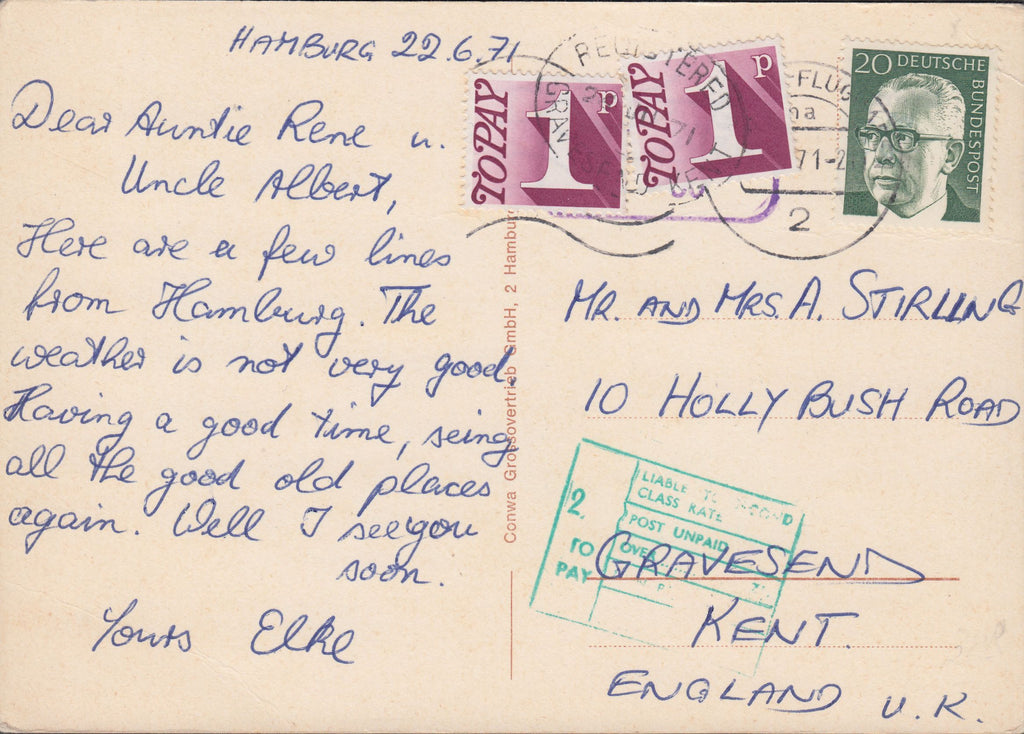 HAMBURG 22.6.71
Dear Auntie Rene u.
Uncle Albert,
Here are a few lines
from Hamburg. The
weather is not very good.
Having a good time, seing
all the good old places
again. Well I see you
soon.
Yours Elke
TO PAY 1p
TO PAY 1p
REGISTERED
GRAVESEND KENT
71
20 DEUTSCHE
BUNDESPOST
FLUG
71-2
2
Conwa Grossovertrieb GmbH, 2 Hamburg
MR. AND MRS. A. STIRLING
10 HOLLY BUSH ROAD
GRAVESEND
KENT.
ENGLAND U.K.
2.
TO
PAY
LIABLE TO SECOND
CLASS RATE
POST UNPAID
OVE